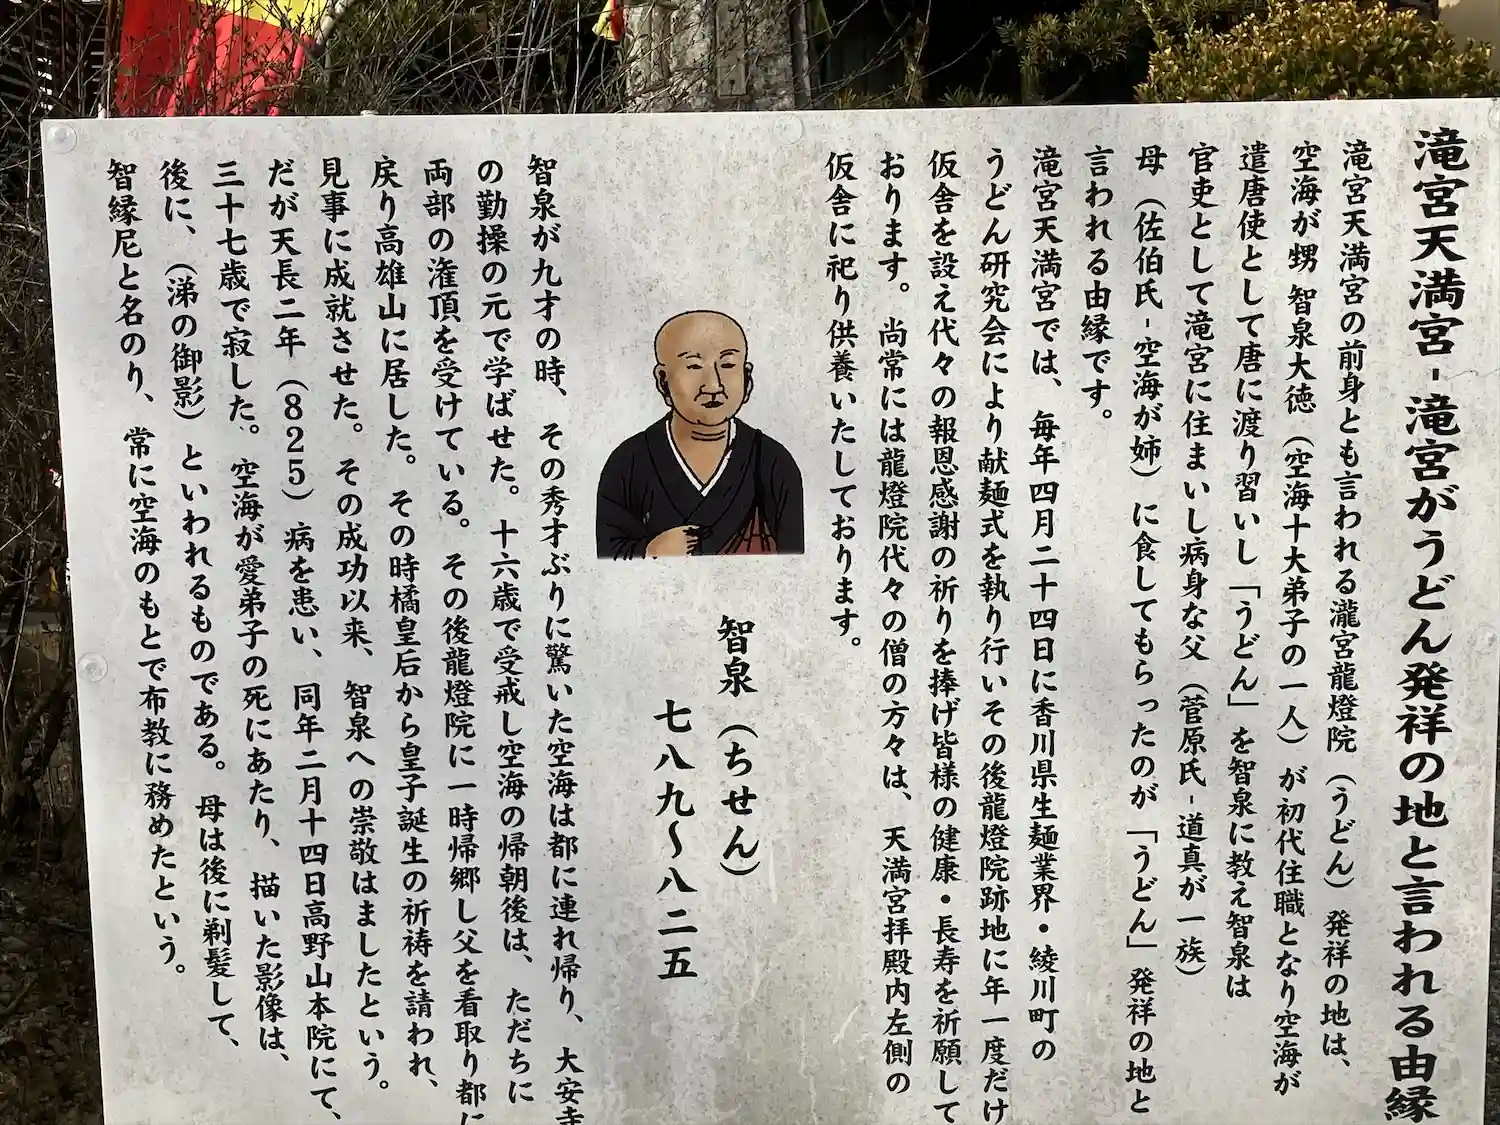 滝宮天満宮-滝宮がうどん発祥の地と言われる由縁
滝宮天満宮の前身とも言われる瀧宮龍燈院（うどん）発祥の地は、
空海が甥 智泉大徳（空海十大弟子の一人）が初代住職となり空海が
遣唐使として唐に渡り習いし「うどん」を智泉に教え智泉は
官吏として滝宮に住まいし病身な父（菅原氏-道真が一族）
母（佐伯氏-空海が姉）に食してもらったのが「うどん」発祥の地と
言われる由縁です。
滝宮天満宮では、毎年四月二十四日に香川県生麺業界・綾川町の
うどん研究会により献麺式を執り行いその後龍燈院跡地に年一度だけ
仮舎を設え代々の報恩感謝の祈りを捧げ皆様の健康・長寿を祈願して
おります。尚常には龍燈院代々の僧の方々は、天満宮拝殿内左側の
仮舎に祀り供養いたしております。
智泉（ちせん）
七八九〜八二五
智泉が九才の時、その秀才ぶりに驚いた空海は都に連れ帰り、大安寺
の勤操の元で学ばせた。十六歳で受戒し空海の帰朝後は、ただちに
両部の潅頂を受けている。その後龍燈院に一時帰郷し父を看取り都に
戻り高雄山に居した。その時橘皇后から皇子誕生の祈祷を請われ、
見事に成就させた。その成功以来、智泉への崇敬はましたという。
だが天長二年（825）病を患い、同年二月十四日高野山本院にて、
三十七歳で寂した。空海が愛弟子の死にあたり、描いた影像は、
後に、（涕の御影）といわれるものである。母は後に剃髪して、
智縁尼と名のり、常に空海のもとで布教に務めたという。